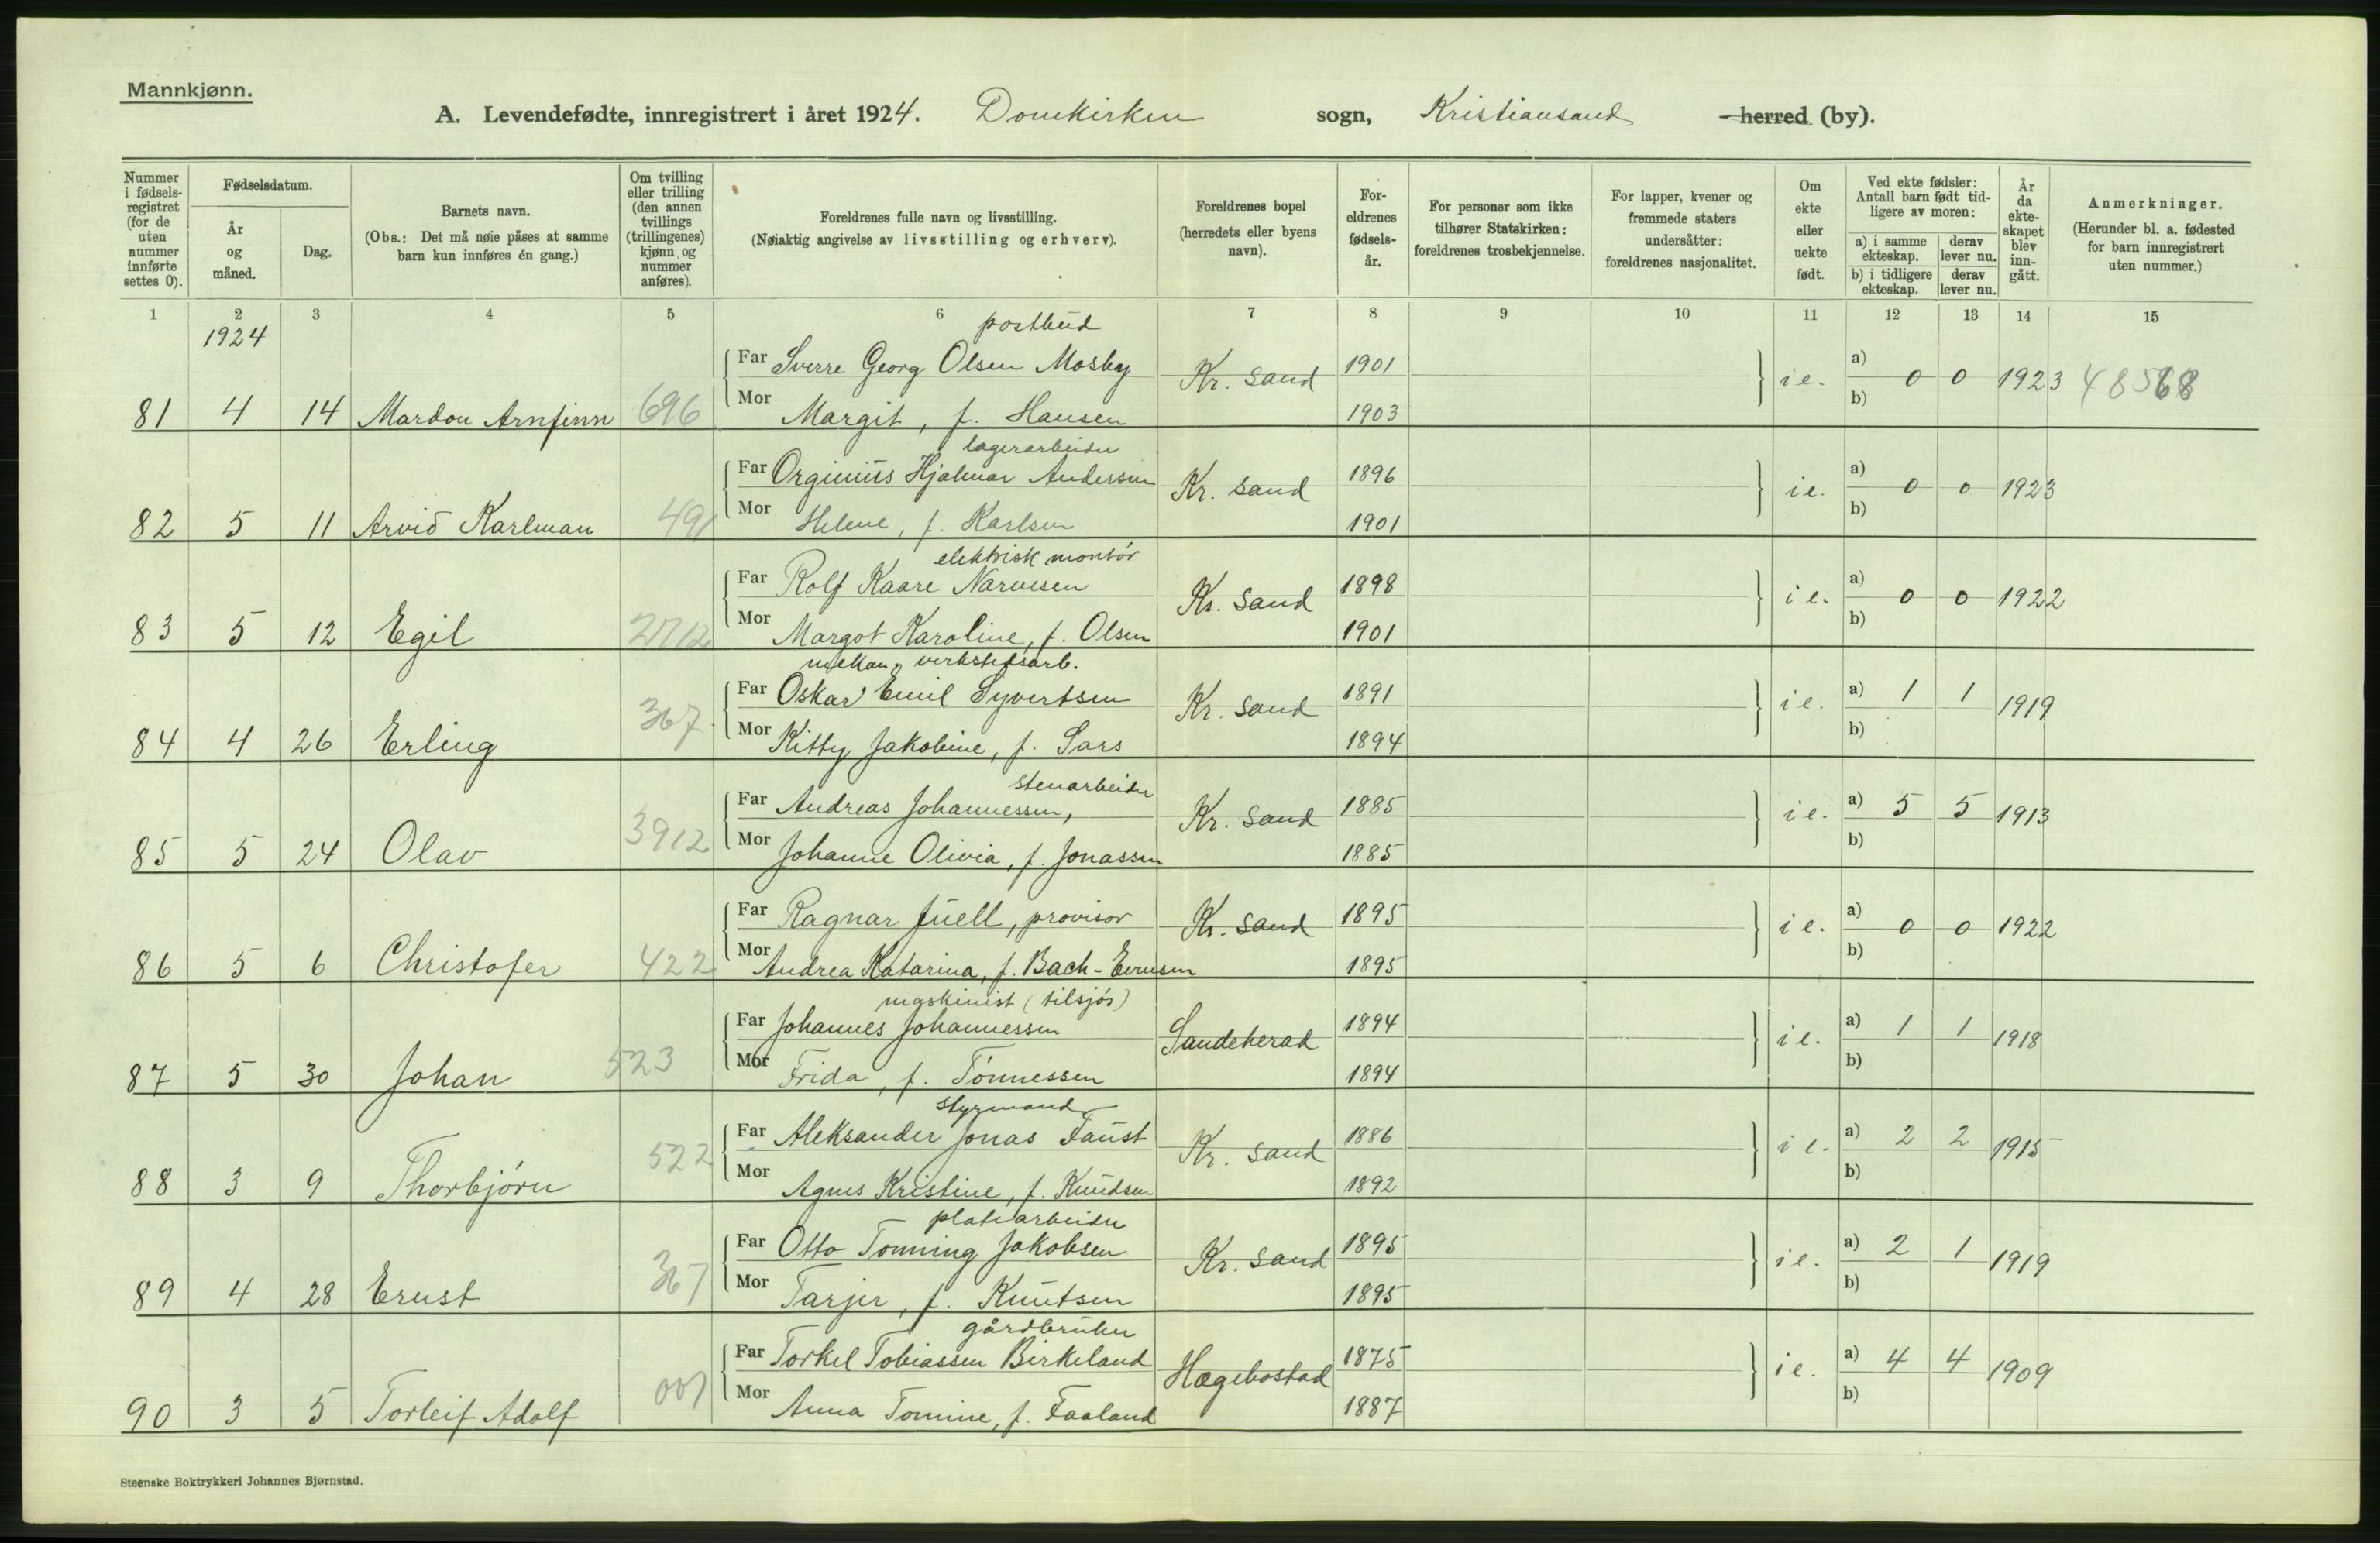 Mannkjønn.
A. Levendefødte, innregistrert i året 1924. Domkirken sogn, Kristiansand herred (by).
Nummer i fødselsregistret (for de uten nummer innførte settes 0).
Fødselsdatum.
År og måned.
Dag.
Barnets navn.
(Obs.: Det må nøie påses at samme barn kun innføres én gang.)
Om tvilling eller trilling (den annen tvillings (trillingenes) kjønn og nummer anføres).
Foreldrenes fulle navn og livsstilling.
(Nøiaktig angivelse av livsstilling og erhverv).
Foreldrenes bopel (herredets eller byens navn).
Foreldrenes fødselsår.
For personer som ikke tilhører Statskirken: foreldrenes trosbekjennelse.
For lapper, kvener og fremmede staters undersåtter: foreldrenes nasjonalitet.
Om ekte eller uekte født.
Ved ekte fødsler: Antall barn født tidligere av moren:
a) i samme ekteskap. derav lever nu.
b) i tidligere ekteskap. derav lever nu.
År da ekteskapet blev inngått.
Anmerkninger.
(Herunder bl. a. fødested for barn innregistrert uten nummer.)
1 2 3 4 5 6 7 8 9 10 11 12 13 14 15
1924
postbud
Far Sverre Georg Olsen Mosby Kr. sand 1901 i e. a) 0 0 1923 48568
81 4 14 Mardon Arnfinn 696 Mor Margit, f. Hansen 1903 b)
lagerarbeider
Far Orginius Hjalmar Andersen Kr. sand 1896 i e. a) 0 0 1923
82 5 11 Arvid Karlman 491 Mor Helene, f. Karlsen 1901 b)
elektrisk montór
Far Rolf Kaare Narvesen Kr. sand 1898 i e. a) 0 0 1922
83 5 12 Egil 2712 Mor Margot Karoline, f. Olsen 1901 b)
mekan. verkstedsarb.
Far Oskar Emil Syvertsen Kr. sand 1891 i e. a) 1 1 1919
84 4 26 Erling 367 Mor Kitty Jakobine, f. Sars 1894 b)
stenarbeider
Far Andreas Johannessen, Kr. sand 1885 i e. a) 5 5 1913
85 5 24 Olav 3912 Mor Johanne Olivia, f. Jonassen 1885 b)
Far Ragnar Juell, provisor Kr. sand 1895 i e. a) 0 0 1922
86 5 6 Christofer 422 Mor Andrea Katarina, f. Bach- 1895 b)
maskinist (tilsjós)
Far Johannes Johannessen Sandeherad 1894 i e. a) 1 1 1918
87 5 30 Johan 523 Mor Frida, f. Tónnessen 1894 b)
styrmand
Far Aleksander Jonas Faust Kr. sand 1886 i e. a) 2 2 1915
88 3 9 Thorbjórn 522 Mor Agnes Kristine, f. Knudsen 1892 b)
platearbeider
Far Otto Tonning Jakobsen Kr. sand 1895 i e. a) 2 1 1919
89 4 28 Ernst 367 Mor Tarjer, f. Knutsen 1895 b)
gårdbruker
Far Torkel Tobiassen Birkeland Hægebostad 1875 i e. a) 4 4 1909
90 3 5 Torleif Adolf 001 Mor Anna Tomine, f. Faaland 1887 b)
Steenske Boktrykkeri Johannes Bjørnstad.